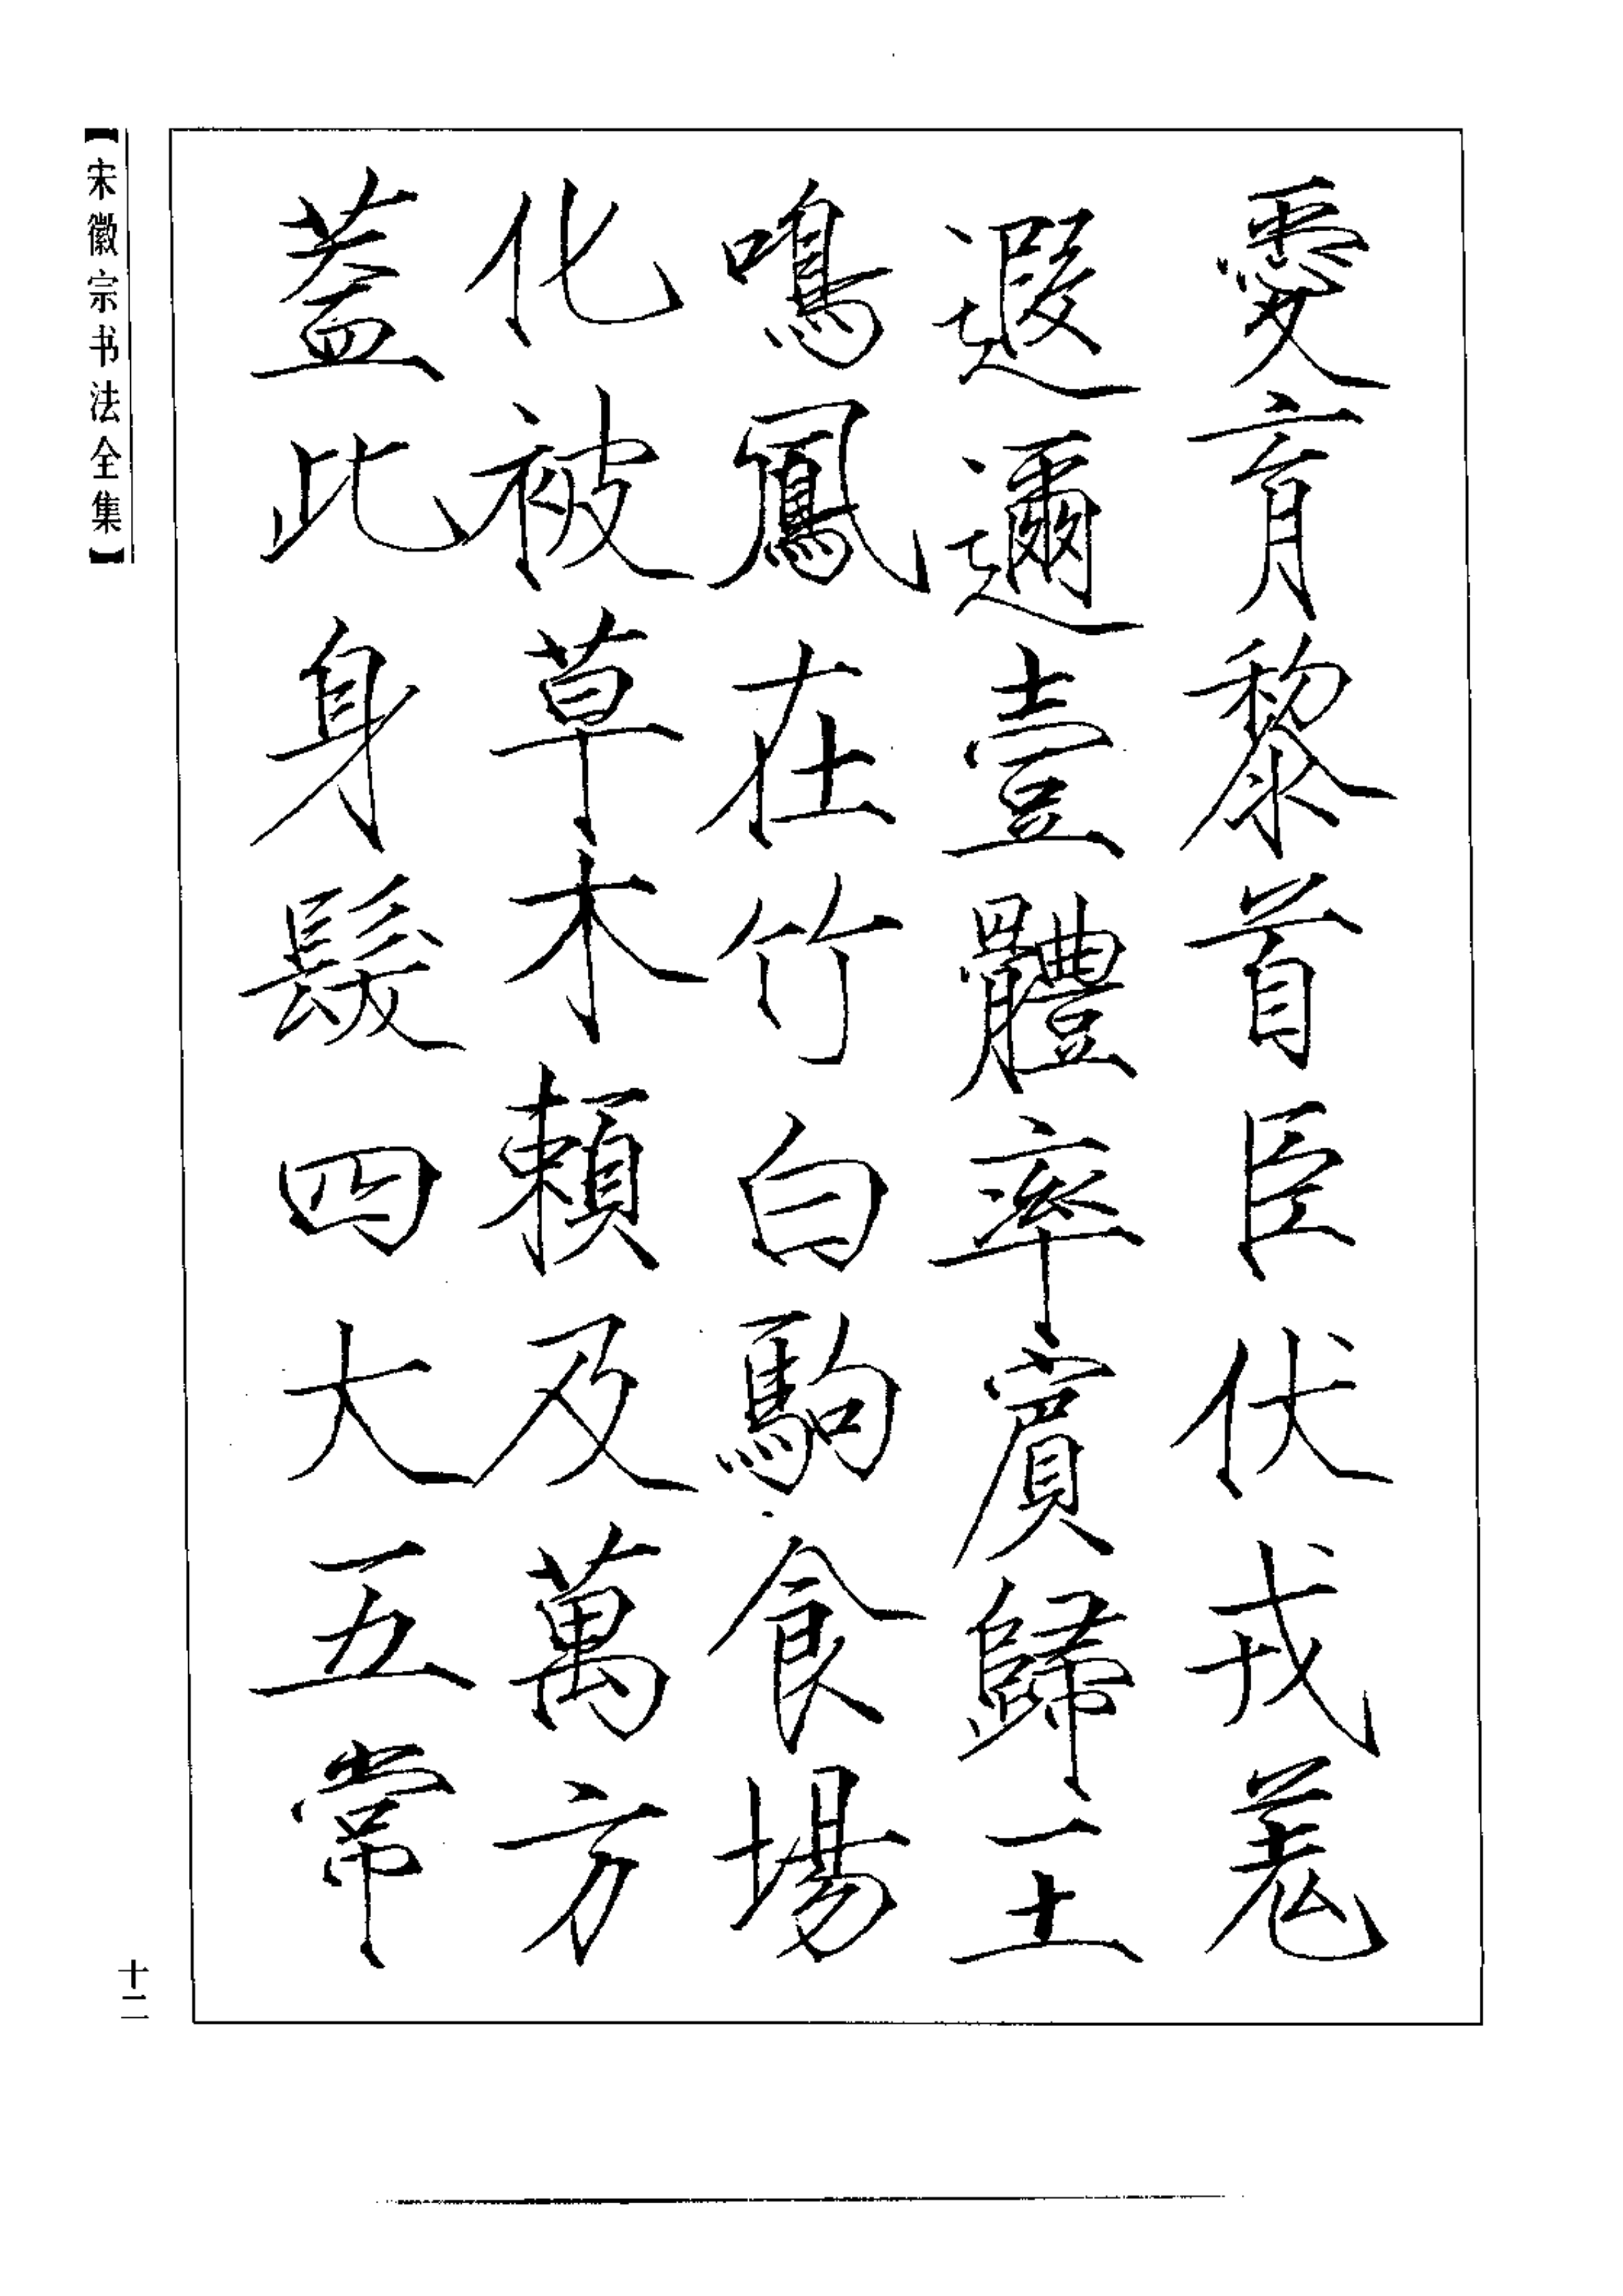 愛育黎首臣伏戎羌
遐邇壹體率賓歸王
鳴鳳在竹白駒食場
化被草木賴及萬方
蓋此身髮四大五常
【宋徽宗书法全集】
十二